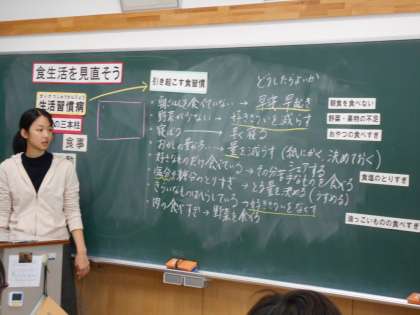 食生活を見直そう
生活習慣病
の三本柱
食事
引き起こす食習慣
どうしたらよいか
・朝ごはんを食べていない → 早寝 早起き
・野菜が少ない → 好ききらいを減らす
早く寝る
・おかしの量 → 量を減らす(紙にかく 決めておく)
・好きなものだけ食べている → その分 なものを食べる
・塩分や糖分のとりすぎ → とる量を決める(うすめる)
・きらいなものはへらしている → 好ききらいをなくす
・肉の食べすぎ → 野菜を食べる
朝食を食べない
野菜・果物の不足
おやつの食べすぎ
食塩のとりすぎ
油っこいものの食べすぎ